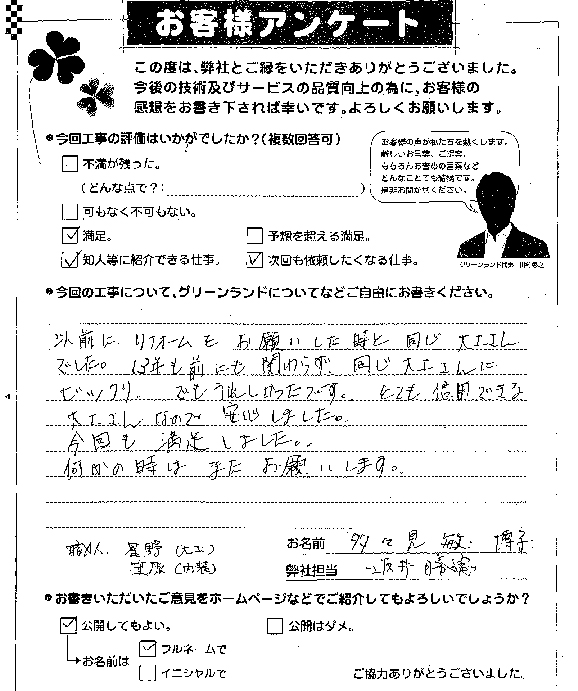 お客様アンケート
この度は、弊社とご縁をいただきありがとうございました。
今後の技術及びサービスの品質向上の為に、お客様の
感想をお書き下されば幸いです。よろしくお願いします。
今回工事の評価はいかがでしたか?(複数回答可)
不満が残った。
(どんな点で?: )
可もなく不可もない。
満足。
予想を超える満足。
知人等に紹介できる仕事。
次回も依頼したくなる仕事。
お客様の声が私たちを熱くします。
厳しいお言葉、ご提案、
もちろんお喜びの言葉など
どんなことでも結構です。
是非お聞かせください。
今回の工事について、グリーンランドについてなどご自由にお書きください。
以前に リフォームを お願いした時と 同じ 大工さん
でした。 13年も前にも 関わらず 同じ 大工さんに
ビックリ でもうれしかったです。 とても 信用できる
大工さん なので 安心しました。
今回も 満足しました。
何かの時は また お願いします。
職人 星野 (大工)
(内装)
お名前
弊社担当
お書きいただいたご意見をホームページなどでご紹介してもよろしいでしょうか?
公開してもよい。
公開はダメ。
お名前は
フルネームで
イニシャルで
ご協力ありがとうございました。